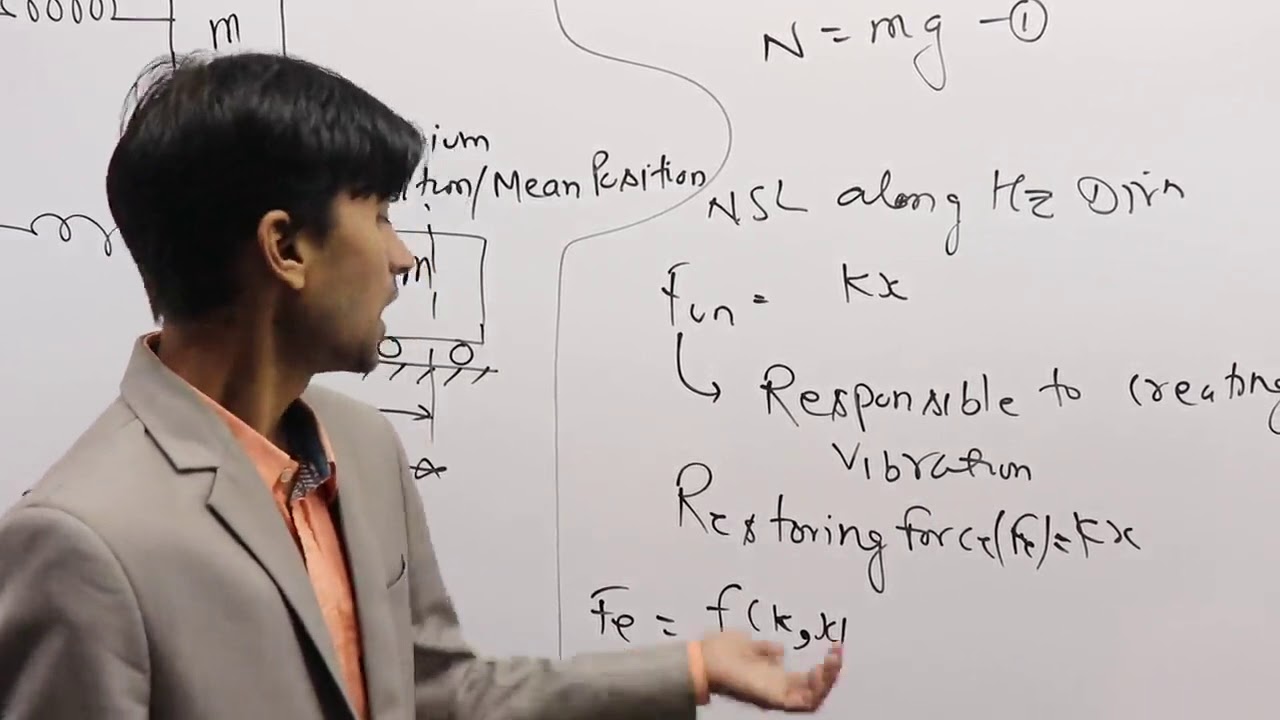 m
N = mg - ①
ium
ition/Mean Position
m
x
NSL along Hz Dirn
Fun = kx
Responsible to creating
Vibration
Restoring force(Fe) = kx
Fe = f(k,x)